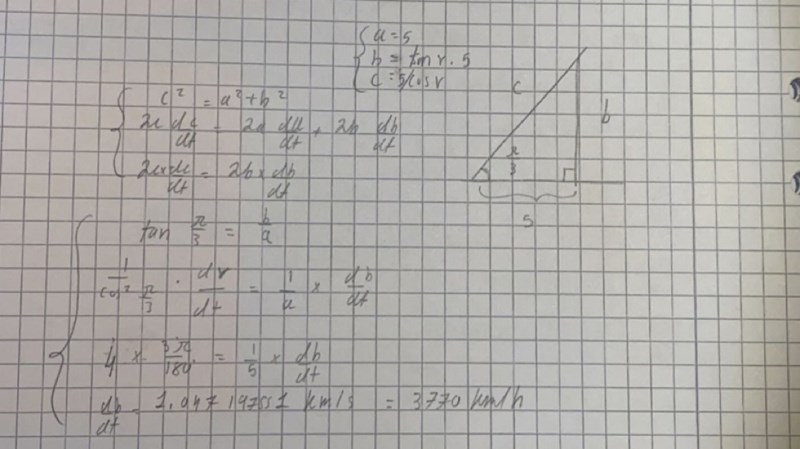 a = 5
b = tan r · 5
c = 5/cos r
c² = a² + b²
2c dc/dt = 2a da/dt + 2b db/dt
2c × dc/dt = 2b × db/dt
c
b
π/3
5
tan π/3 = b/a
1/cos² π/3 · dr/dt = 1/a × db/dt
4 × 3π/180 = 1/5 × db/dt
db/dt = 1.047197551 km/s = 3770 km/h